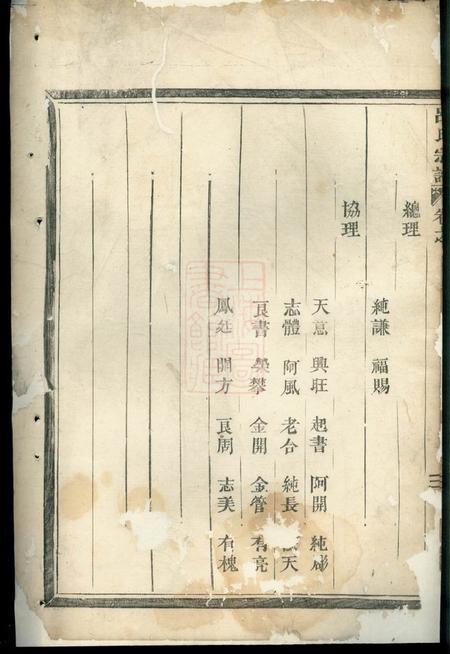 呂氏宗譜 卷之
總理
純謙 福賜
協理
天意 興旺 起書 阿開 純彬
志體 阿風 老台 純長 天
良書 攀 金開 金管 有亮
鳳廷 開方 良周 志美 有槐